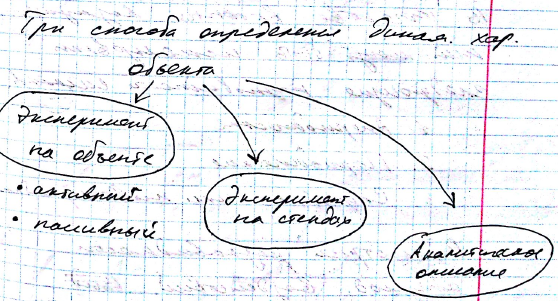 Три способа определения динам. хар.
объекта
Эксперимент
на объекте
• активный
• пассивный
Эксперимент
на стендах
Аналитическое
описание